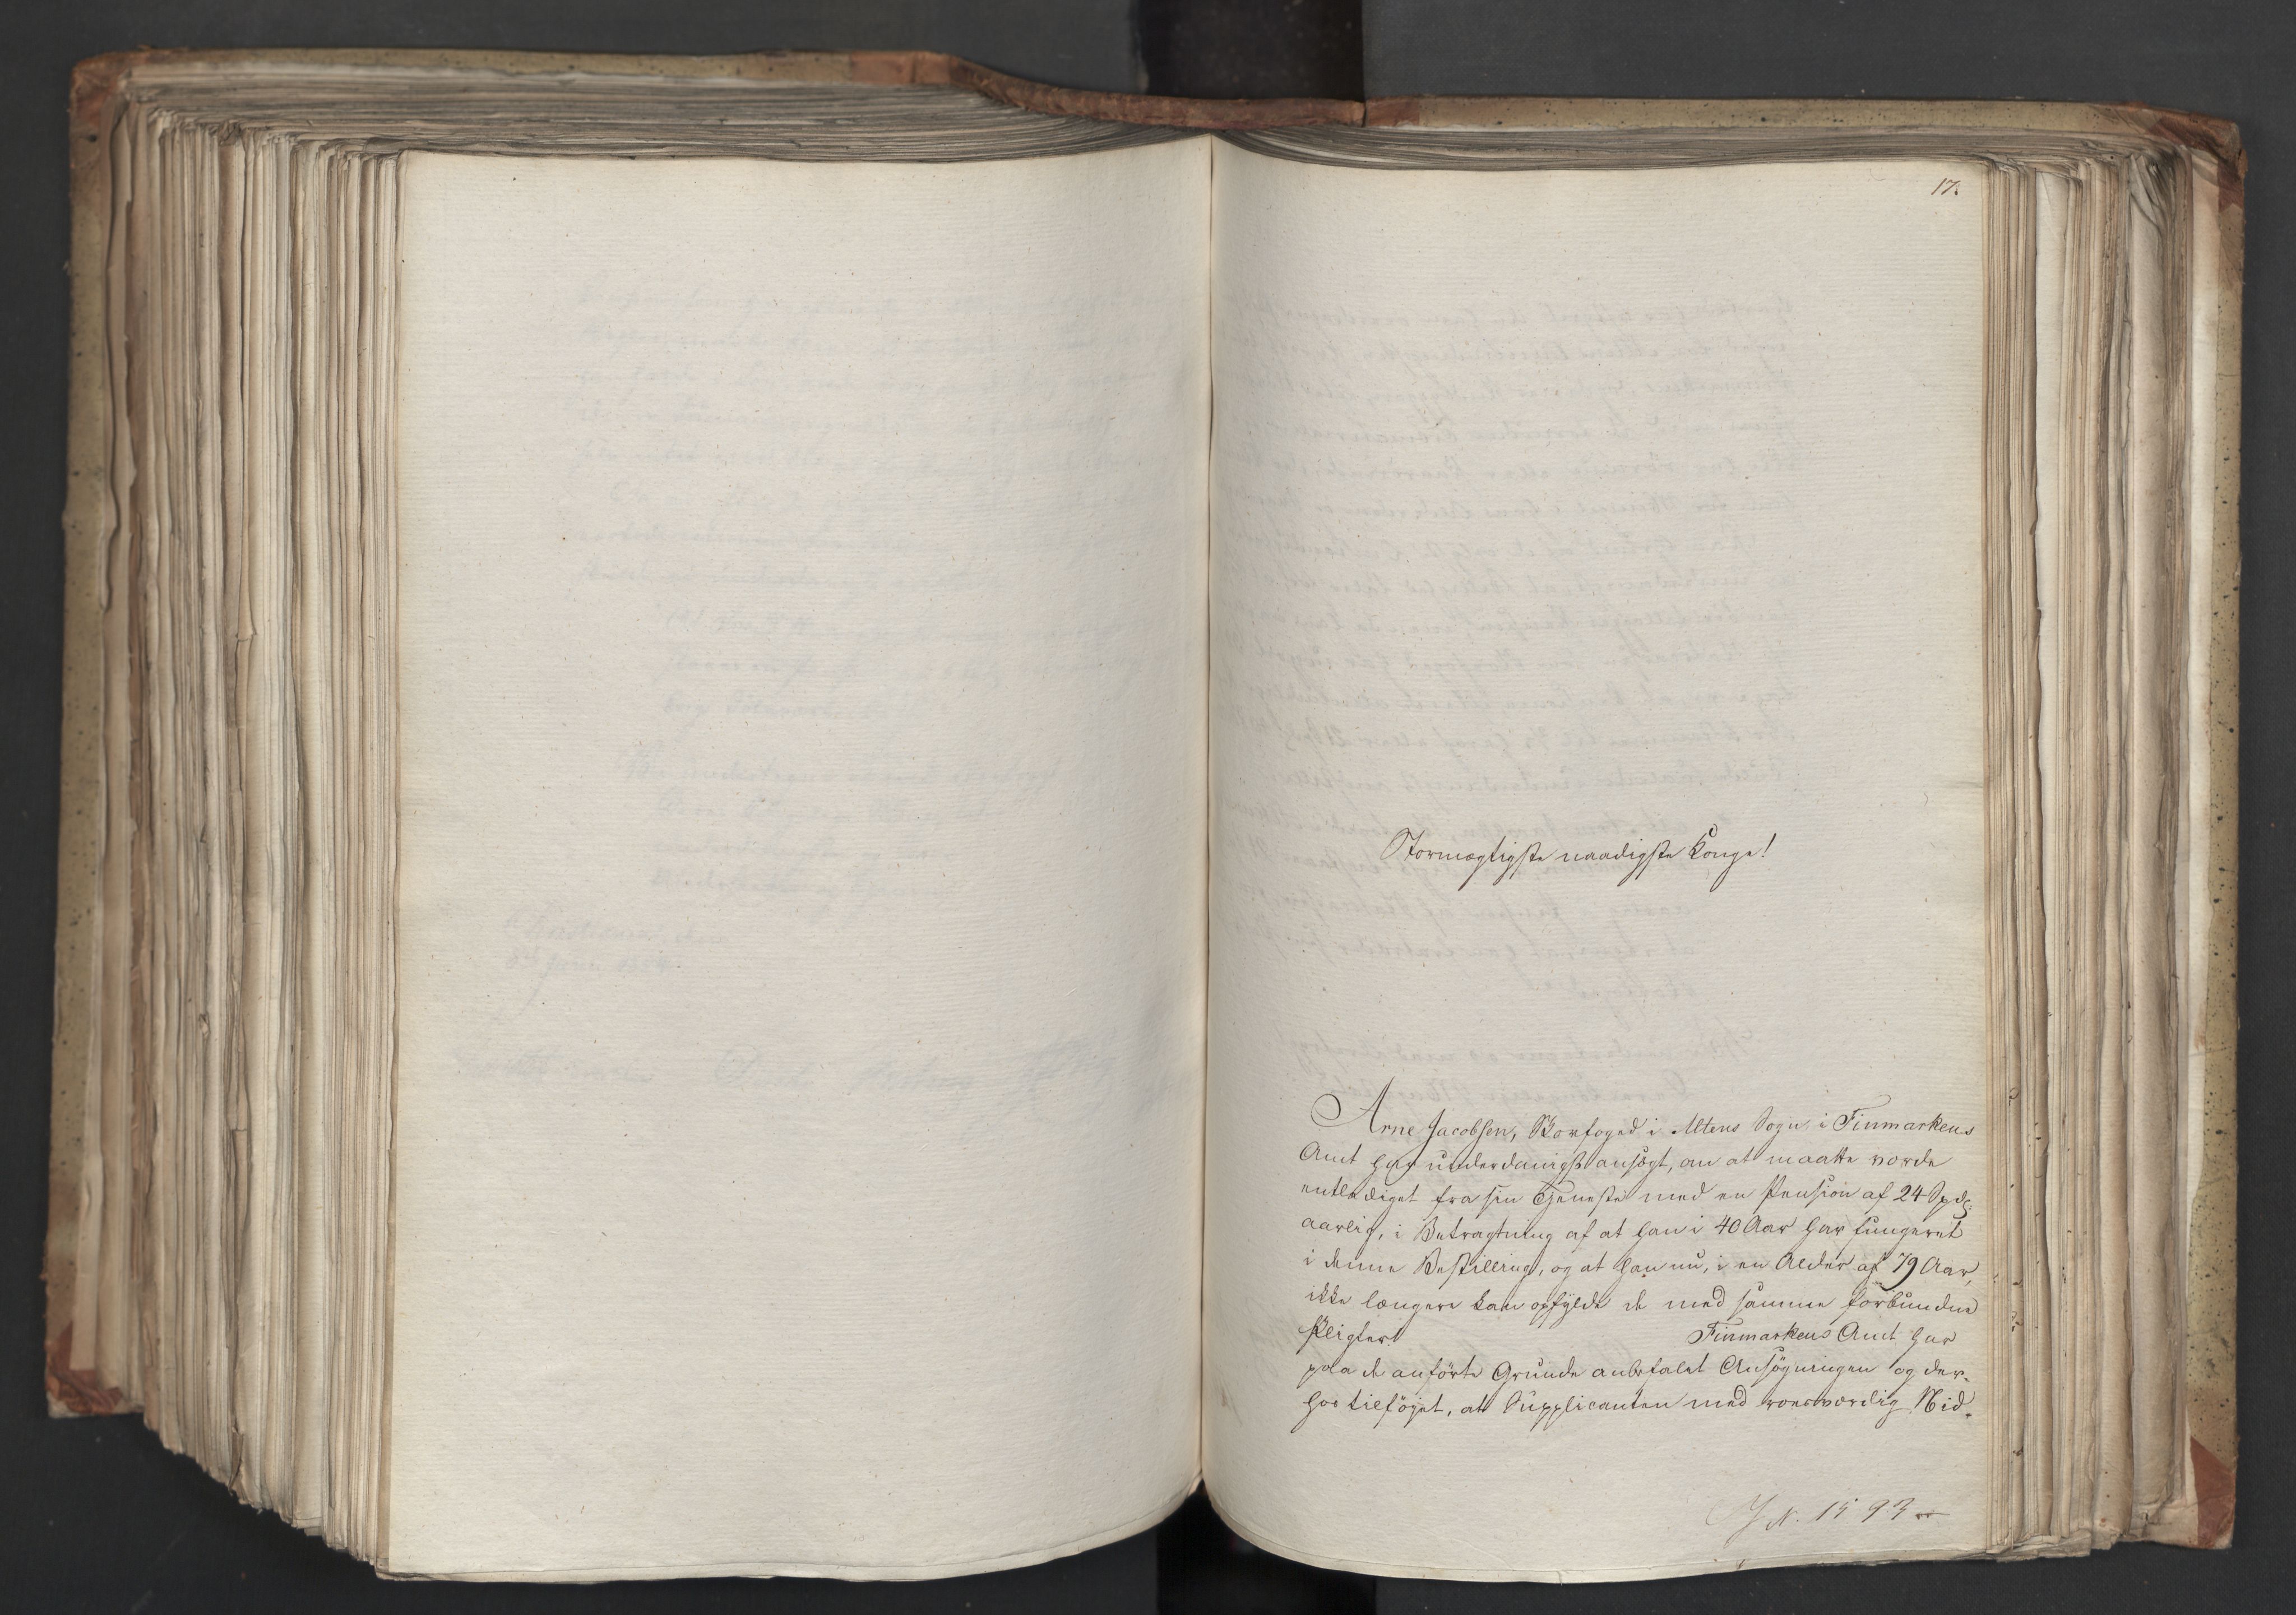 17.
Stormægtigste naadigste Konge!
Arne Jacobsen, Skovfoged i Altens Sogn i Finmarkens
Amt har underdanigst ansögt, om at maatte vorde
entlediget fra sin Tjeneste med en Pension af 24 Spd:
aarlig, i Betragtning af at han i 40 Aar har fungeret
i denne Bestilling, og at han nu, i en Alder af 79 Aar,
ikke længere kan opfylde de med samme forbundne
Pligter. Finmarkens Amt har
paa de anförte Grunde anbefalet Ansögningen og der-
hos tilföjet, at Supplicanten med roesværdig Nid-
J. N. 1593